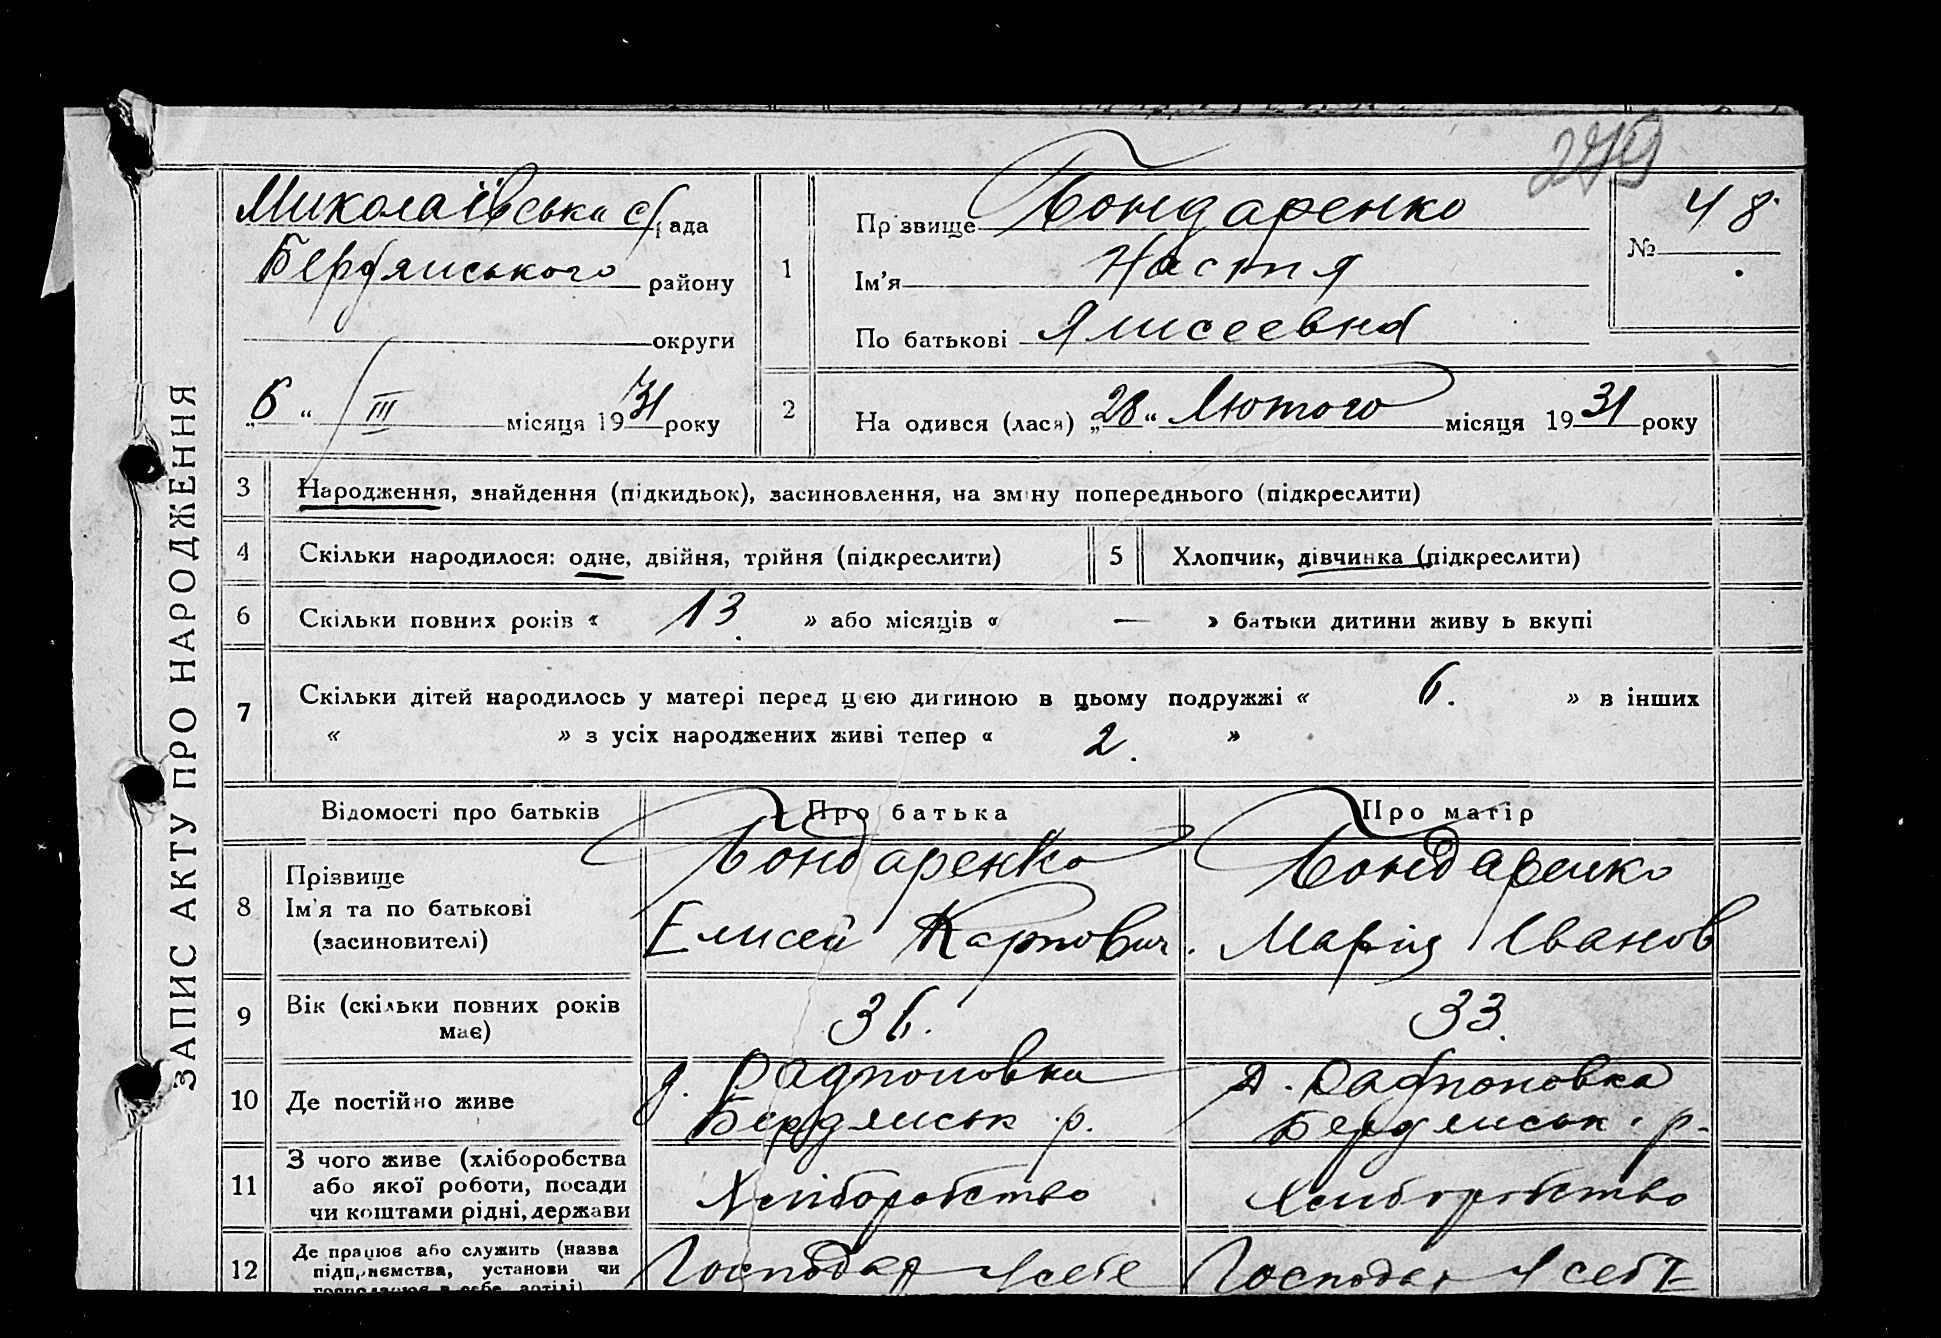 279
ЗАПИС АКТУ ПРО НАРОДЖЕННЯ
Миколаївська с/рада
Бердянського району
округи
„6“ III місяця 1931 року
1
Прізвище Бондаренко
Ім'я Настя
По батькові Ялисеевна
№ 48
2
На одився (лася) „28“ Лютого місяця 1931 року
3 Народження, знайдення (підкидьок), засиновлення, на зміну попереднього (підкреслити)
4 Скільки народилося: одне, двійня, трійня (підкреслити) 5 Хлопчик, дівчинка (підкреслити)
6 Скільки повних років « 13 » або місяців « — » батьки дитини живу ь вкупі
7 Скільки дітей народилось у матері перед цією дитиною в цьому подружжі « 6. » в інших
« » з усіх народжених живі тепер « 2. »
Відомості про батьків Про батька Про матір
8 Прізвище Бондаренко Бондаренко
Ім'я та по батькові Елисей Карпович. Марія Іванов
(засиновителі)
9 Вік (скільки повних років має) 36. 33.
10 Де постійно живе
Бердянськ р. Бердянськ. р.
11 З чого живе (хліборобства
або якої роботи, посади Хліборобство Хлиборобство
чи коштами рідні, держави
12 Де працює або служить (назва
підприємства, установи чи Господар
господарює в себе, артілі)